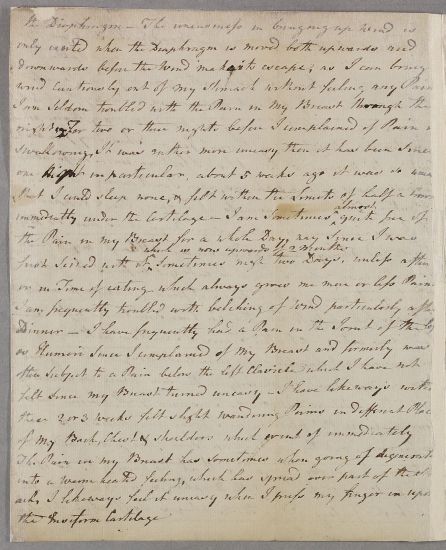 the Diaphragm – The uneasiness in bringing up Wind is
only excited when the Diaphragm is moved both upwards and
downwards before the Wind makes its escape; as I can bring
wind Cautiously out of my Stomach without feeling any Pain
I am Seldom troubled with the Pain in My Breast through the
night For two or three nights before I complained of Pain in
Swallowing, It was rather more uneasy than it has been Since
one Night in particular, about 5 weeks ago it was so
that I could sleep none, & felt within the Limits of half a
immediatly under the Cartilage – I am Sometimes almost quite free of
the Pain in my Breast for a whole Day, nay Since I was
first Seised with it, which is now upwards of 2 Months Sometimes near two Days, unless after
or in Time of eating which always gives me more or less Pain
I am frequently troubled with belching of Wind particularly after
Dinner – I have frequently had a Pain in the Joint of the
Humeri Since I complained of My Breast and formerly was
often Subject to a Pain below the Left Clavicle which I have not
felt Since my Breast turned uneasy – I have likeways within
these 2 or 3 weeks felt slight wandering Pains in different Places
of My Back, Chest & Shoulders which went of immediately
The Pain in my Breast has Sometimes when going of degenerate
into a warm heated feeling, which has Spread over part of the
I likeways feel it uneasy when I press my finger in upon
the Ensiform Cartilage